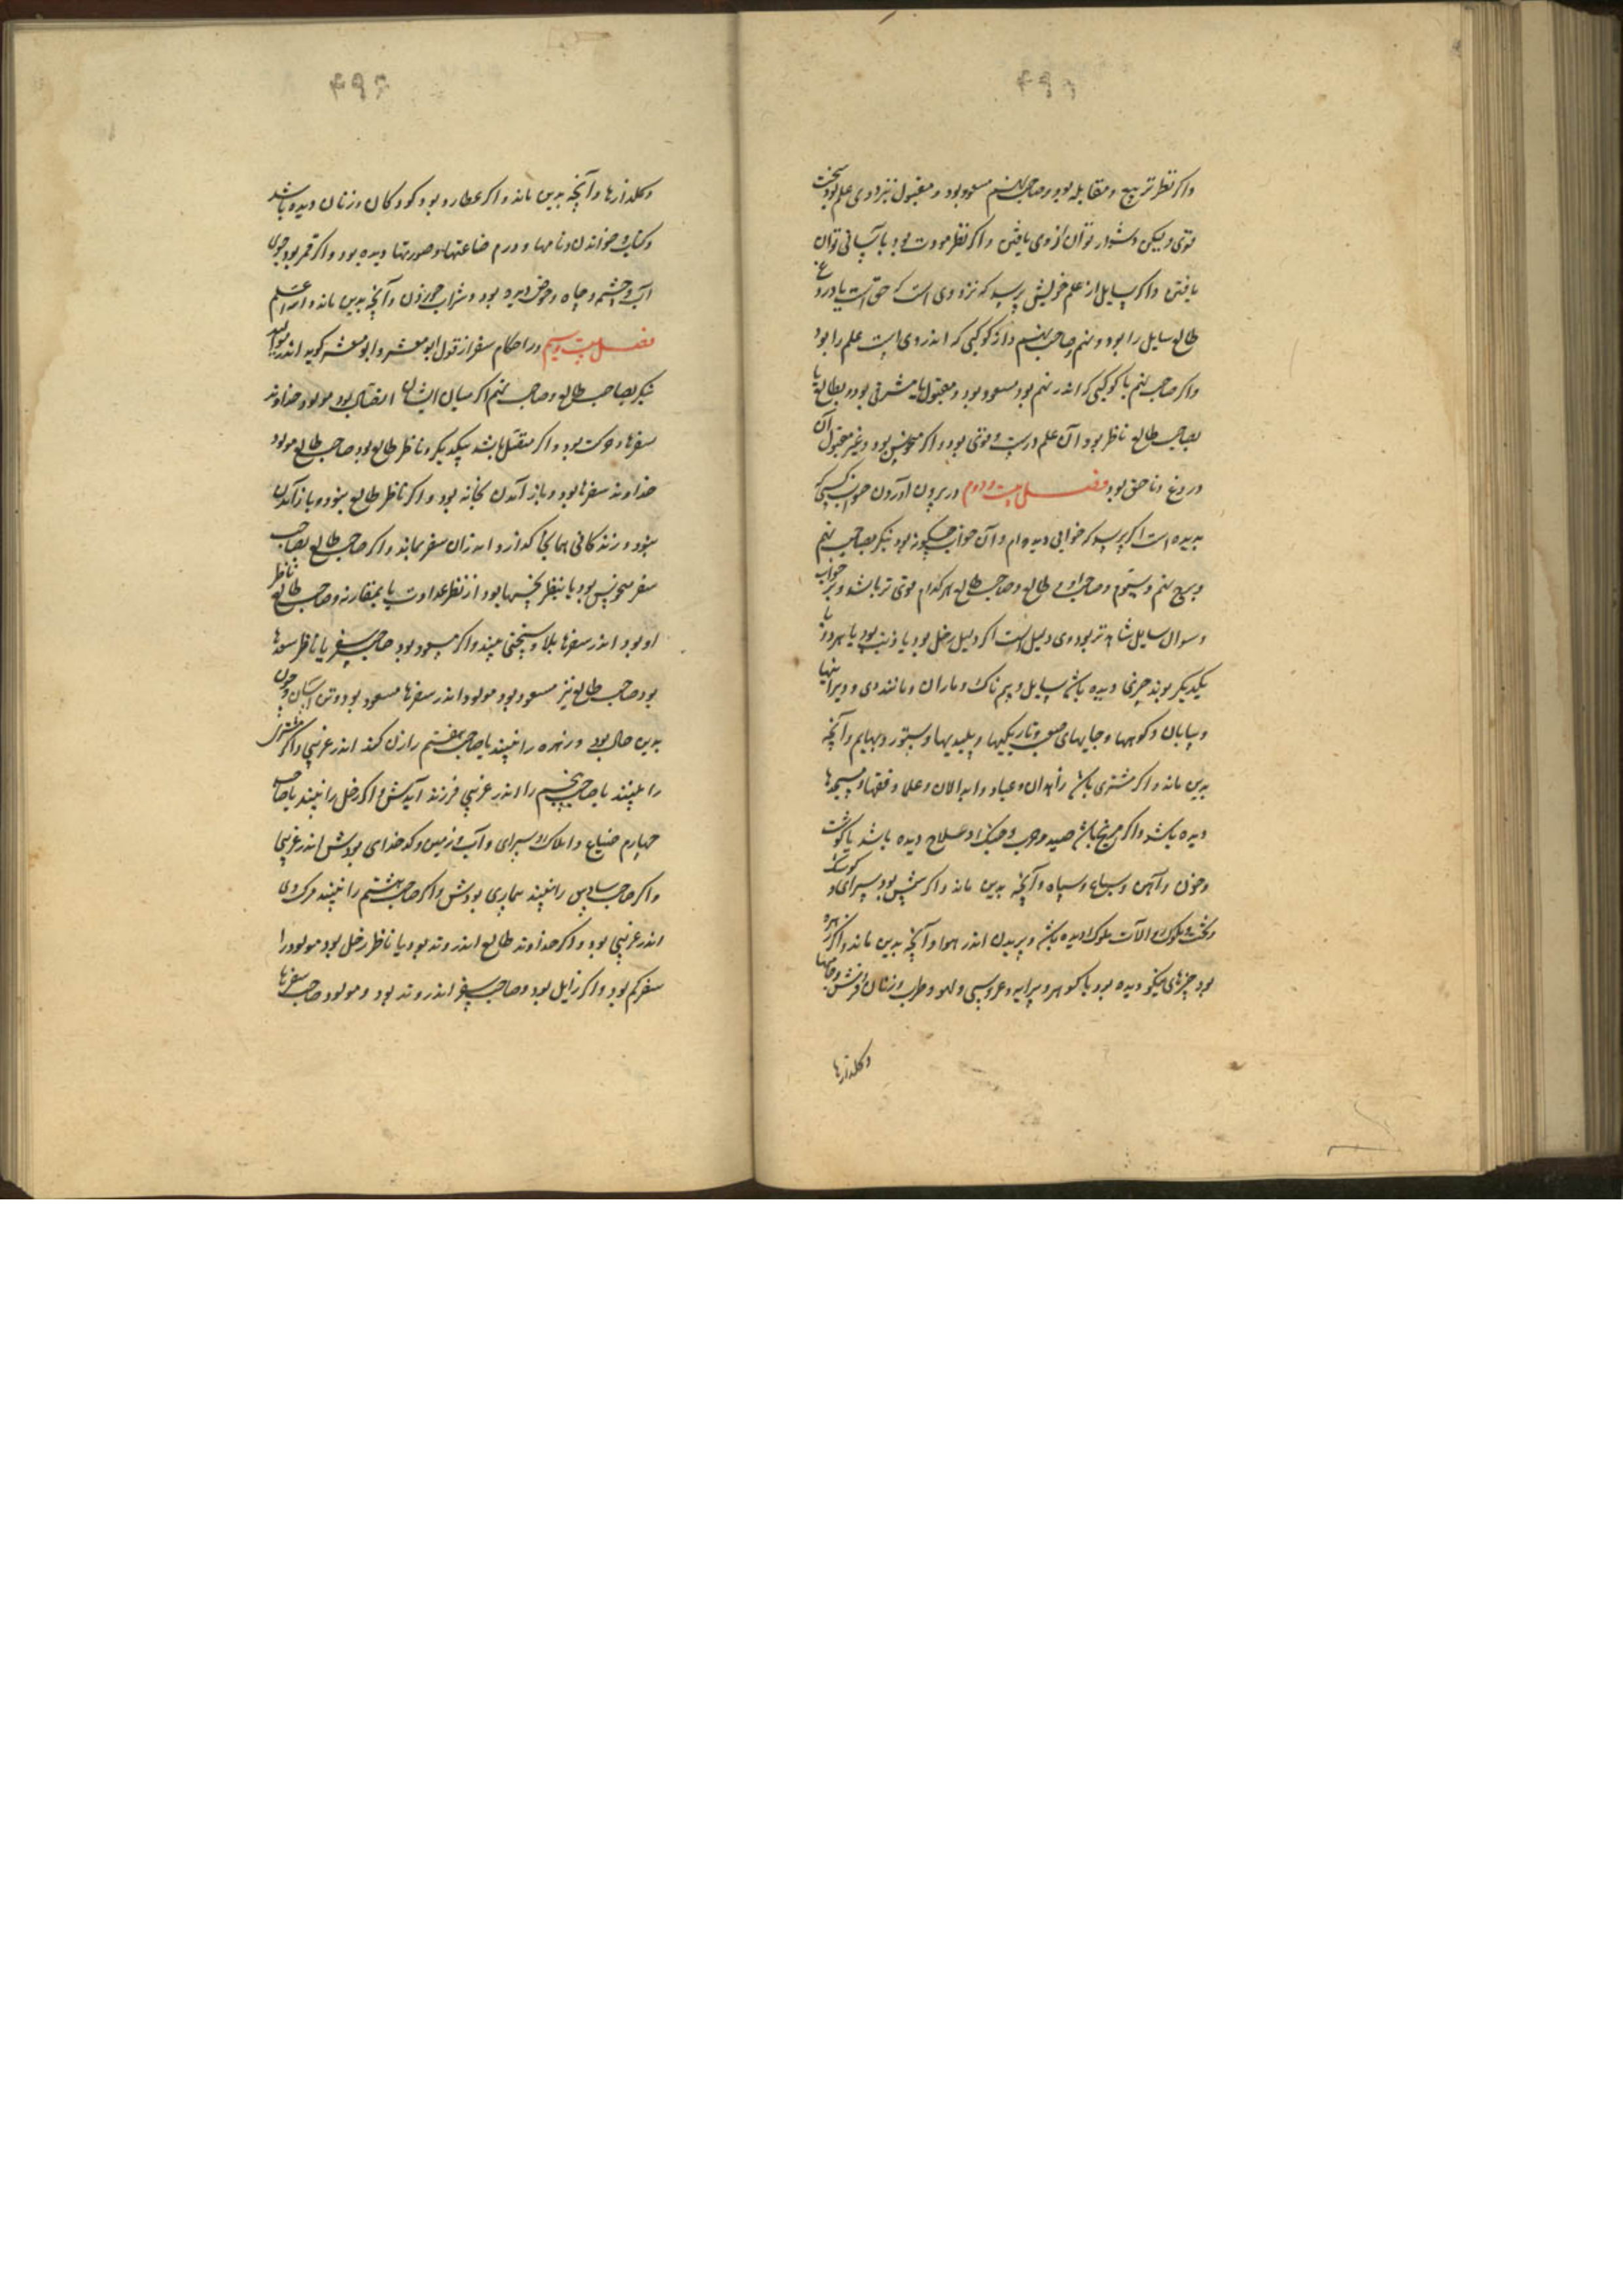 واکر نظر تربیع و مقابله بود و صاحب نهم مسعود بود و مقبول نیز دوی علم بود سخت
قوی ولیکن دشوار توان از وی یافتن واکر نظر مودت بود با آسانی توان
یافتن واکر سایل از علم خویش پرسد که نزد وی است که حق است یا دروغ
طالع سایل را بود و نهم و صاحب نهم و از کوکبی که اندر وی است علم را بود
واکر صاحب نهم یا کوکبی که اندر نهم بود مسعود بود و مقبول یا مشرقی بود و بطالع یا
بصاحب طالع ناظر بود آن علم درست و قوی بود واکر منحوس بود و غیر مقبول آن
دروغ و ناحق بود فصل بیست و دوم در بیرون آوردن خواب کسی که
بدیده است اکر پرسد که خوابی دیده ام و آن خواب چکونه بود بنکر بصاحب نهم
و برج نهم و سیوم و صاحب او و طالع و صاحب طالع هر کدام قوی تر باشد و بر خواب
و سوال سایل شاهدتر بود وی دلیل است اکر دلیل زحل بود یا ذنب بود یا هر دو با
یکدیکر بوند چیزی دیده باشد سایل و بیم ناک و ماران و مانند وی و ویرانیها
و بیابان و کوهها و جایهای صعب و تاریکیها و پلیدیها و ستور و بهایم و آنچه
بدین ماند واکر مشتری باشد زاهدان و عباد و ابدالان و علما و فقها و مسجدها
دیده باشد واکر مریخ باشد صید و حرب و جنک و سلاح دیده باشد یا کوشت
و خون و آهن و سباع و سپاه و آنچه بدین ماند واکر شمس بود سرای و کوشک
و تخت و ملوک و آلات ملوک دیده باشد و پریدن اندر هوا و آنچه بدین ماند واکر زهره
بود چیزهای نیکو دیده بود یا کوهر و پیرایه و عروسی و لهو و طرب و زنان و فرش و جامها
و کلدازها
و کلدازها و آنچه بدین ماند واکر عطارد بود کودکان و زنان دیده باشد
و کتاب خواندن و نامها و درم ضاعتها و صورتها دیده بود واکر قمر بود جوی
آب و چشمه و چاه و حوض دیده بود و شراب خوردن و آنچه بدین ماند والله اعلم
فصل بیست و سیم در احکام سفر از قول ابو معشر و ابو معشر کوید اندر موالید
بنکر بصاحب طالع و صاحب نهم اکر میان ایشان اتصال بود مولود خداوند
سفرها و حرکت بود واکر متصل باشد بیکدیکر و ناظر طالع بود صاحب طالع مولود
خداوند سفرها بود و باز آمدن بخانه بود واکر ناظر طالع نبود و باز آمدن
نبود و زندکانی همانجا کذارد و اندران سفر بماند واکر صاحب طالع بصاحب
سفر منحوس بود یا بنظر نحسها بود از نظر عداوت یا بمقارنه و صاحب طالع ناظر
او بود اندر سفرها بلا و سختی بیند واکر مسعود بود صاحب سفر یا ناظر سعدها
بود صاحب طالع نیز مسعود بود مولود اندر سفرها مسعود بود و تن آسان و چون
بدین حال بود و زهره را بیند یا صاحب هفتم را زن کند اندر غریبی واکر مشتری
را بیند یا صاحب پنجم را اندر غریبی فرزند آیدش واکر زحل را بیند یا صاحب
چهارم ضیاع و املاک و سرای و آب و زمین و کدخدای بودش اندر غریبی
واکر صاحب سادس را بیند بیماری بودش واکر صاحب هشتم را بیند مرک وی
اندر غریبی بود واکر خداوند طالع اندر وتد بود یا ناظر زحل بود مولود را
سفر کم بود واکر زایل بود و صاحب سفر اندر وتد بود و مولود صاحب سفرها